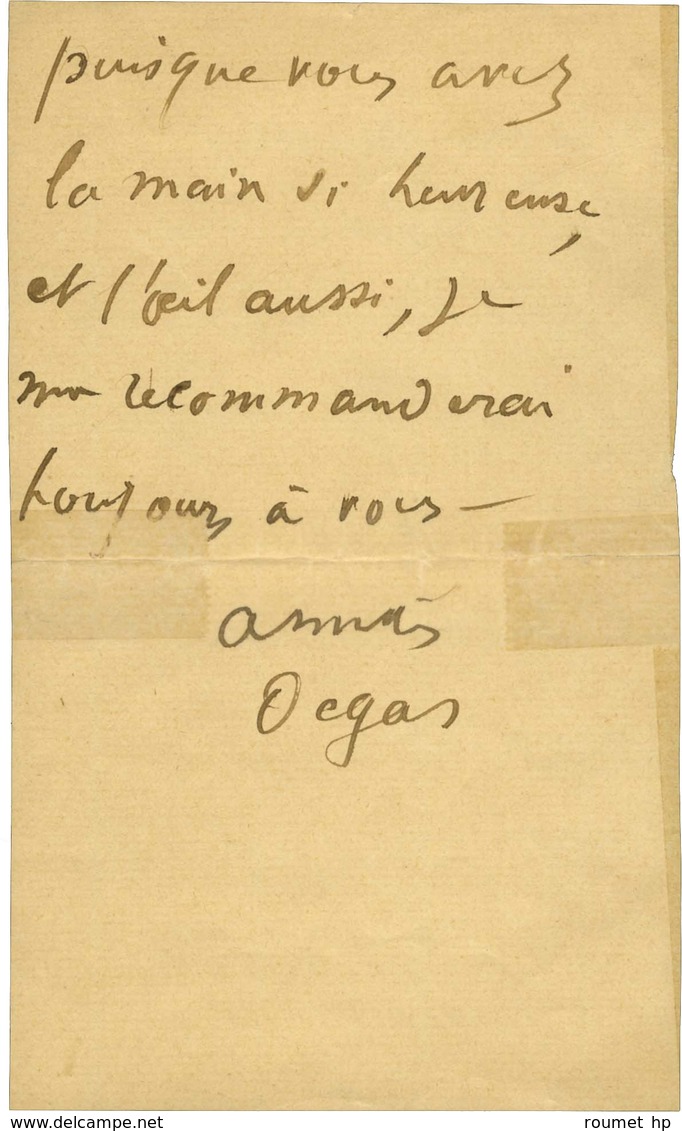 puisque vous avez
la main si heureuse,
et l'œil aussi, je
me recommanderai
toujours à vous —
Degas
www.delcampe.net
roumet hp